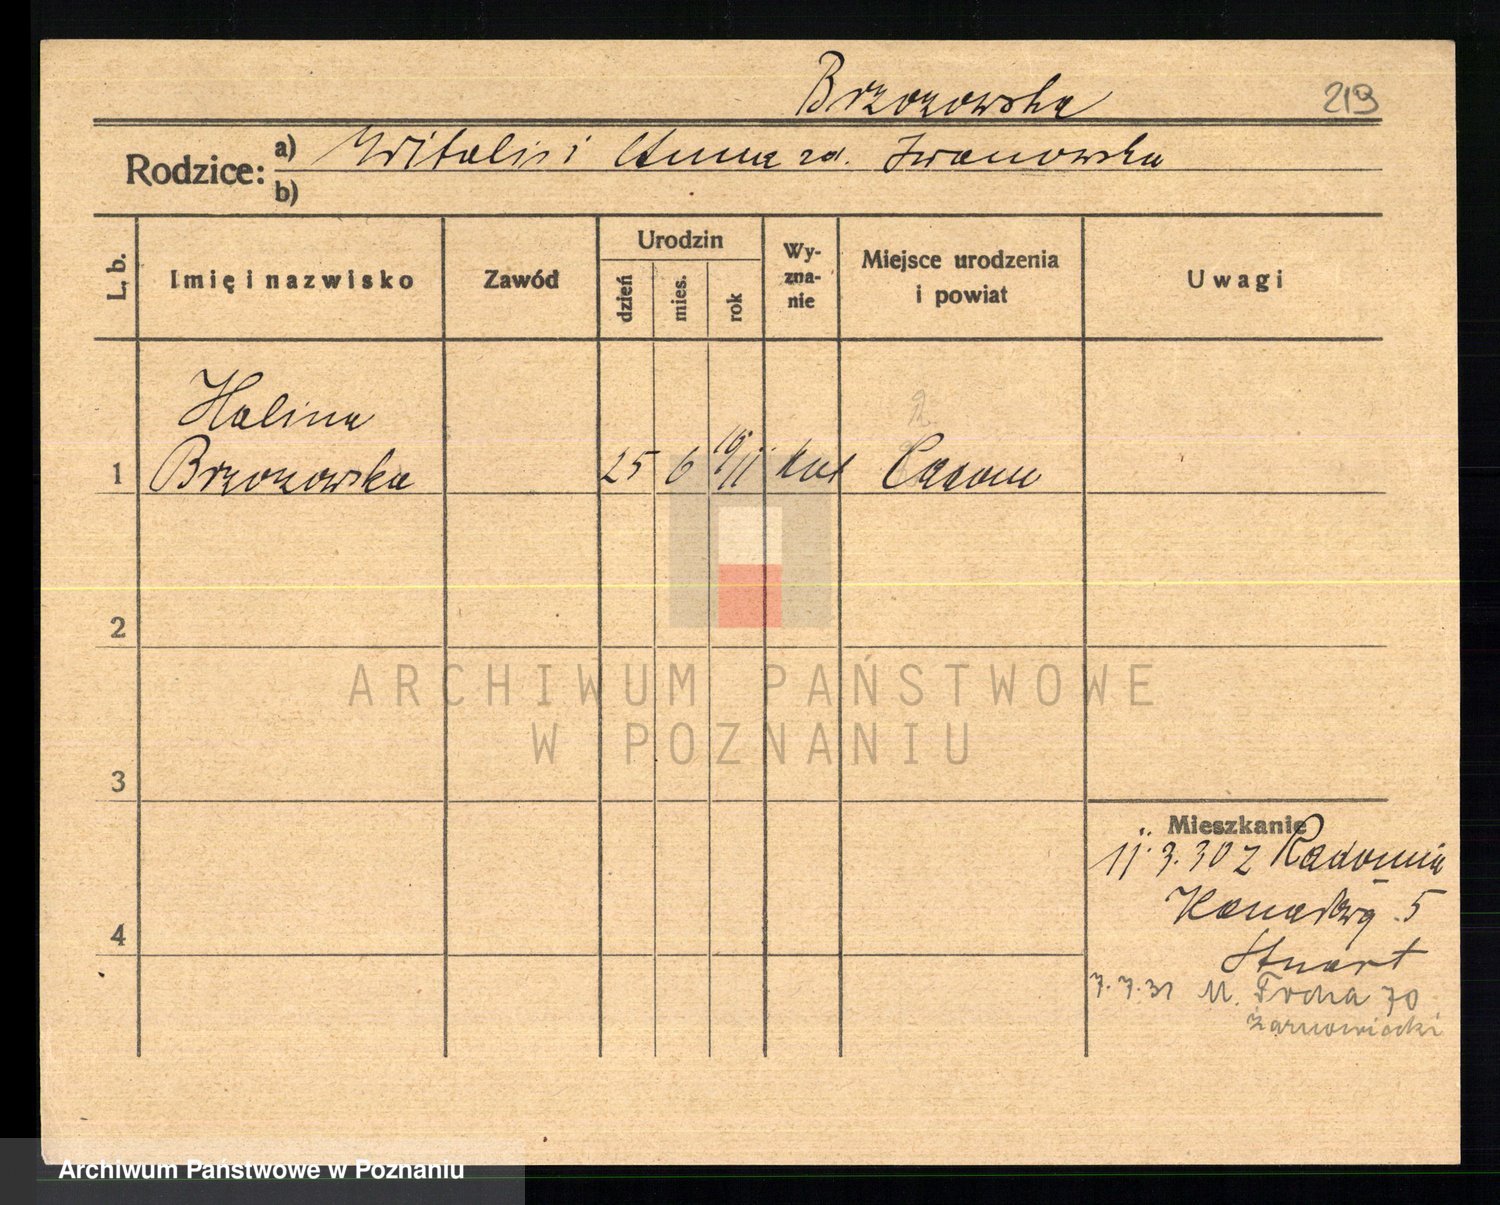 Brzozowska
219
Rodzice: a) Witalis i Anna zd. Iwanowska
b)
L. b.
Imię i nazwisko
Zawód
Urodzin
dzień
mies.
rok
Wy-
zna-
nie
Miejsce urodzenia
i powiat
Uwagi
Halina
1 Brzozowska 25 6 kat
2
ARCHIWUM PAŃSTWOWE
W POZNANIU
3
4
Mieszkanie
11.3.30 z Radomia
5
Stuart
7.7.31 M. Focha 70
Żarnowiecki
Archiwum Państwowe w Poznaniu